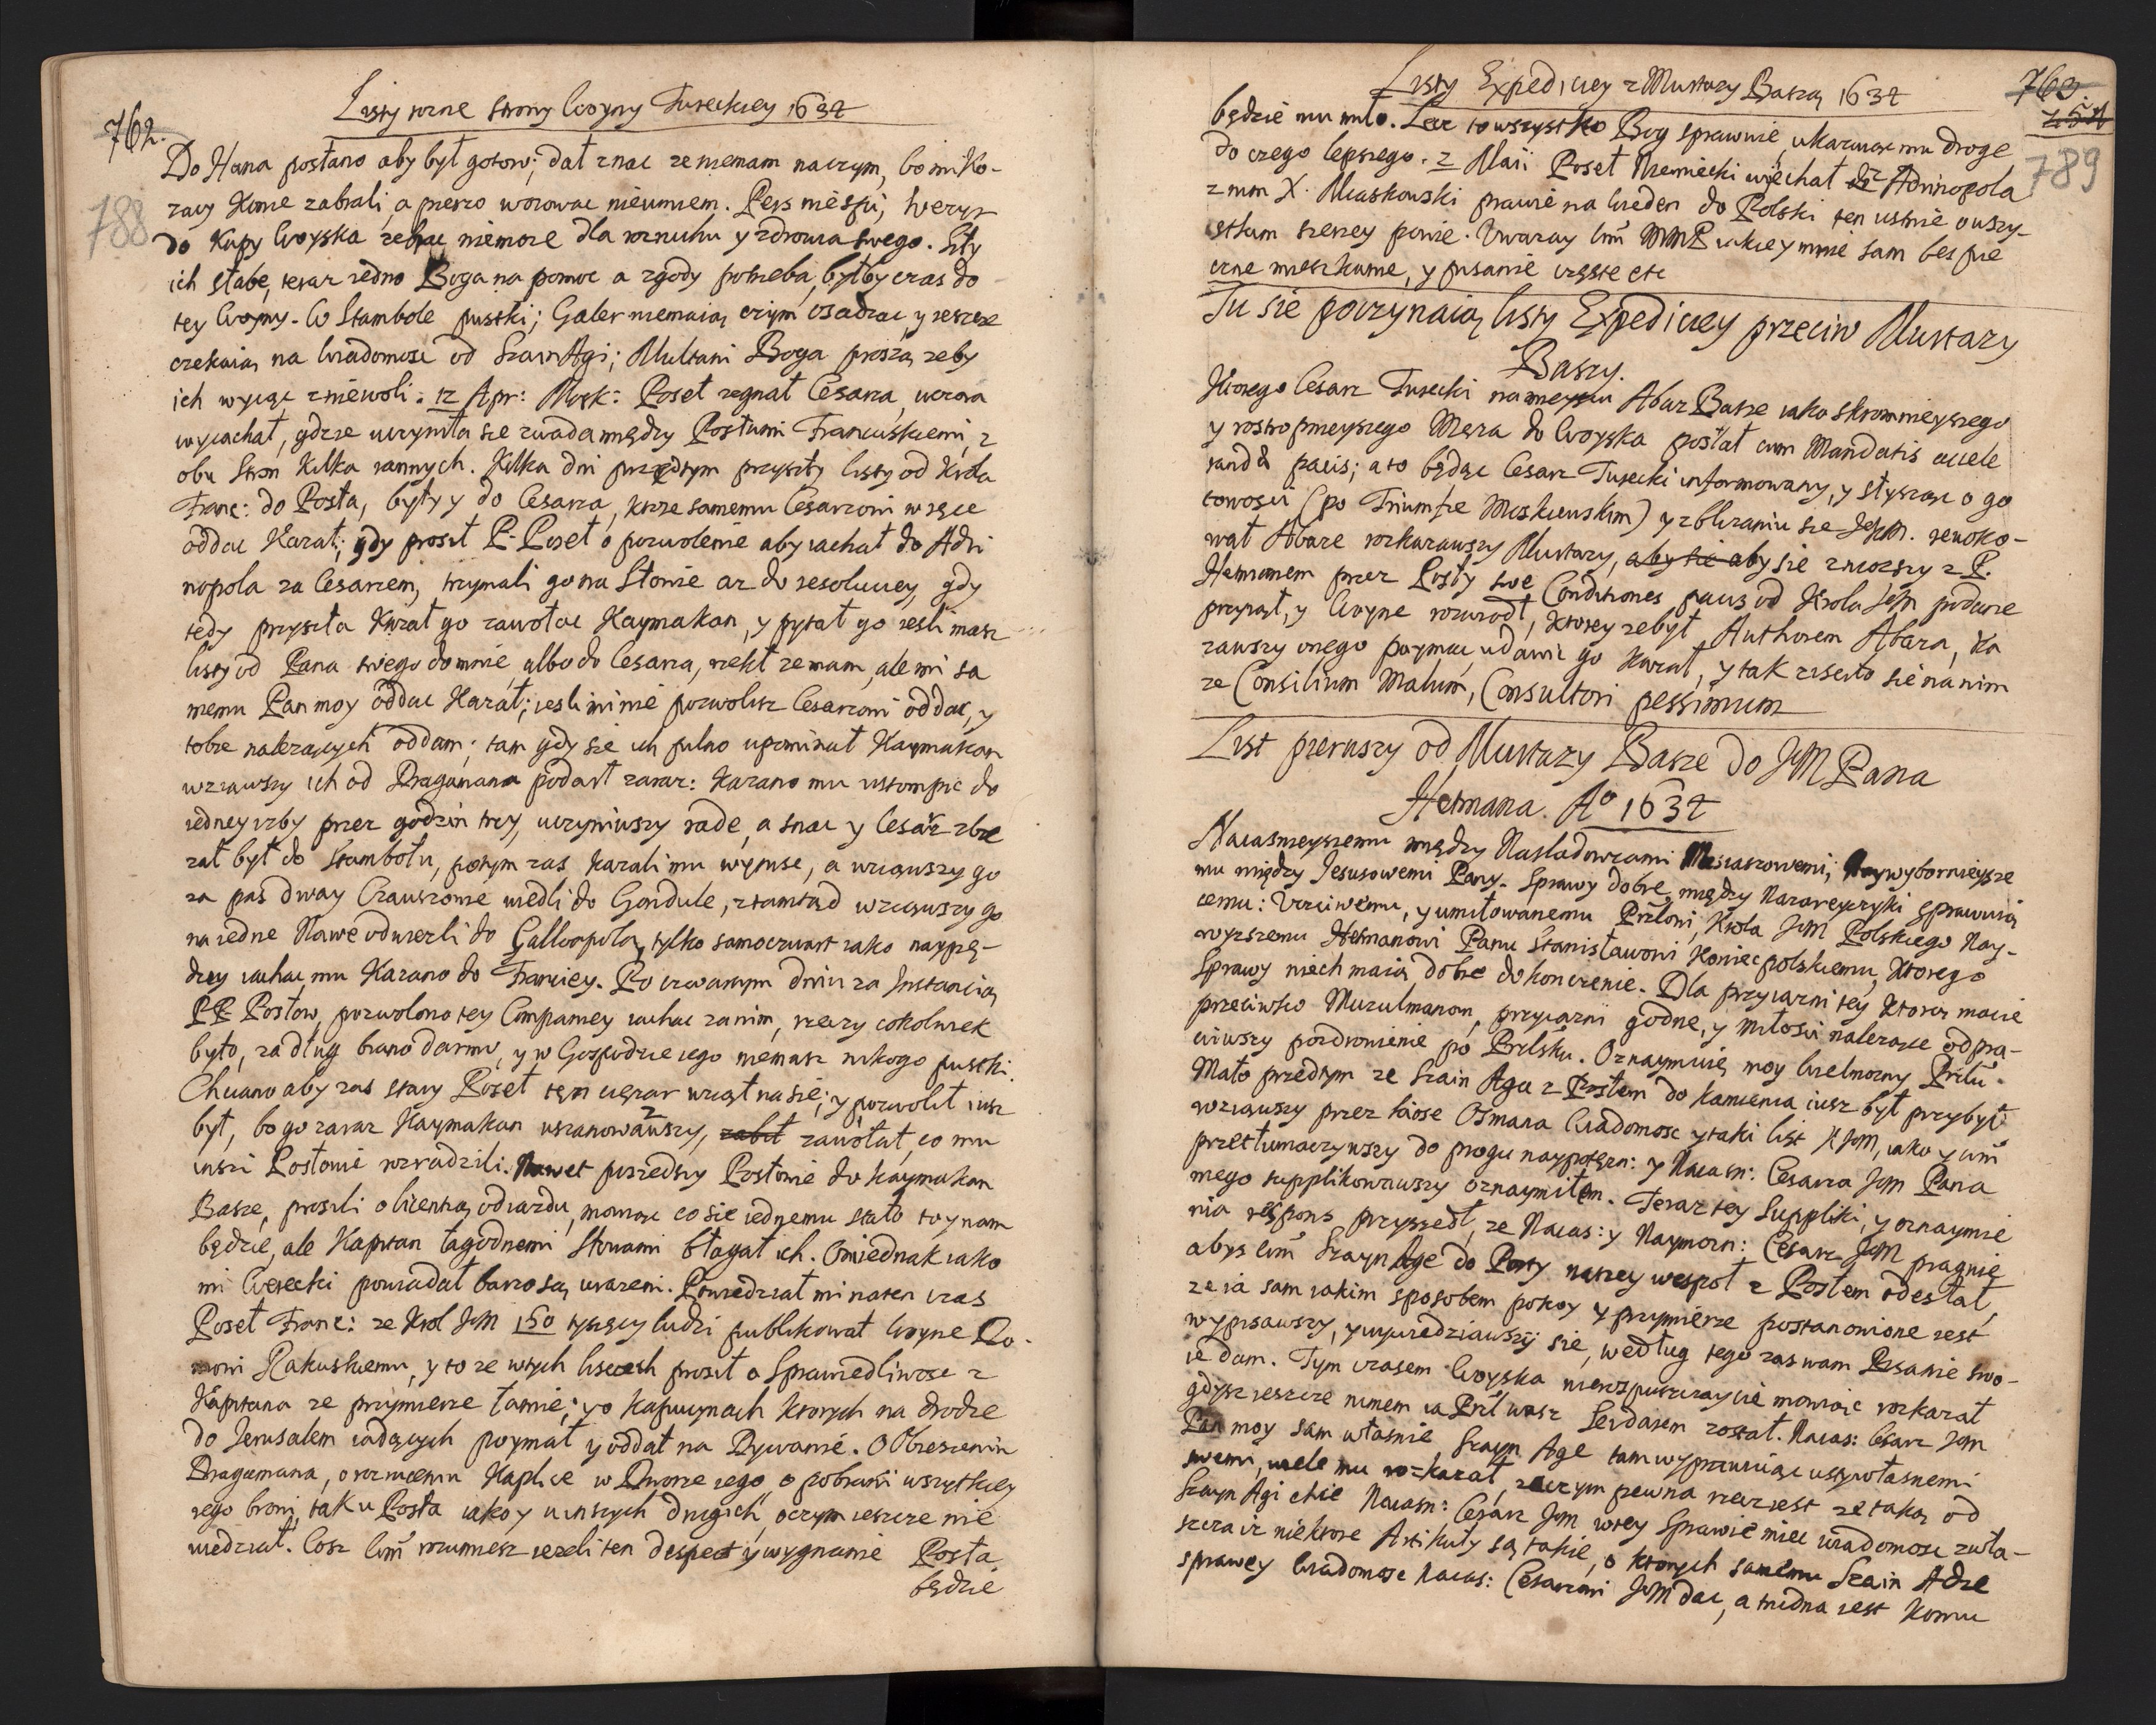 Listy rozne strony Woyny Tureckiey 1634
762.
788
Do Hana posłano aby był gotow; dał znac ze niemam naczym, bo mi Ko-
zacy Konie zabrali, a pieszo woiowac nieumiem. Pers niespi, Wezyr
do Kupy Woyska zebrac niemoze dla rozruchu y zdrowia swego. Siły
ich słabe, teraz iedno Boga na pomoc a zgody potrzeba, byłby czas do
tey Woyny. W Stambole pustki; Galer niemaią czym osadzac, y ieszcze
czekaią na wiadomosc od Szain Agi; Multani Boga proszą zeby
ich wyiąc z niewoli. 12 Apr: Mosk: Poseł zegnał Cesarza, wczora
wyiachał, gdzie uczyniła sie zwada między Posłami Francuskiemi, z
obu stron kilka rannych. Kilka dni przedtym przyszły listy od Krola
Franc: do Posła, były y do Cesarza, ktore samemu Cesarzowi w ręce
oddac Kazał; gdy prosił P. Poseł o pozwolenie aby iachał do Adri
nopola za Cesarzem, trzymali go na słowie az do resolucyey, gdy
tedy przyszła Kazał go zawołac Kaymakan, y pytał go iesli masz
listy od Pana twego do mnie, albo do Cesarza, rzekł ze mam, ale mi sa
memu Pan moy oddac Kazał; iesli mi nie pozwolisz Cesarzowi oddac, y
tobie nalezących oddam; tam gdy sie ich pilno upominał Kaymakan
wziąwszy ich od Dragamana podarł zaraz: kazano mu ustompic do
iedney izby przez godzin trzy, uczyniwszy rade, a snac y Cesarz zbie
zał był do Stambołu, potym zas kazali mu wynisc, a wziąwszy go
za pas dway Czauszowie wiedli do Gondule, ztamtąd wziąwszy go
na iedne Nawe odwiezli do Gallopola, tylko samoczwart iako nayprę-
dzey iachac mu Kazano do Franciey. Po czwartym dniu za Instancią
PP. Posłow, pozwolono tey Compamey iachac za nim, rzeczy cokolwiek
było, za dług brano darmo, y w Gospodzie iego niemasz nikogo pustki.
Chciano aby zas stary Poseł ten ciężar wziął na sie; y pozwolił iusz
był, bo go zaraz Kaymakan uszanowawszy, zabił zawołał, co mu
inszi Posłowie rozradzili. Nawet poszedszy Posłowie do Kaymakan
Basze, prosili o licentią odiazdu, mowiąc co sie iednemu stało toy nam
będzie, ale Kapitan łagodnemi słowami błagał ich. Oni iednak iako
mi Wenecki powiadał barzo są urazeni. Powiedział mi na ten czas
Poseł Franc: ze Krol JeM 150 tysięcy ludzi publikował Woyne Do-
mowi Rakuskiemu, y to ze w tych lisciech prosił o Sprawiedliwosc z
Kapitana ze przymierze łamie; y o Kapucynach ktorych na drodze
do Jerusalem iadących poymał y oddał na Pływanie. O Obieszeniu
Dragamana, o rozmiceniu Kaplice w Dworze iego, o pobraniu wszytkiey
iego broni, tak u Posła iako y u inszych drugich, o czym ieszcze nie
wiedział. Cosz Wm rozumiesz iezeli ten despect y wygnanie Posła
będzie
Listy Expediciey z Murtazy Baszą 1634
763
789
będzie mu miło. Lecz to wszystko Bog sprawuie, ukazuiąc mu droge
do czego lepszego. 2 Maii Poseł Niemiecki wyiechał do Adrinopola
z nim X. Miaskowski prawie na Wieden do Polski ten ustnie o wszy-
stkim szerzey powie. Uwazay Wm MMP iakie y mnie sam bespie
czne mieszkanie, y pisanie częste etc
Tu sie poczynaią listy Expediciey przeciw Murtazy
Baszy.
Ktorego Cesarz Turecki na mieyscu Abaz Basze iako skromnieyszego
y rostropnieyszego Męza do Woyska posłał cum Mandatis accele
randæ pacis; a to będąc Cesarz Turecki informowany, y słysząc o go
towosci (po Triumfie Moskiewskim) y zblizaniu sie JKM. rewoko-
wał Abaze rozkazawszy Murtazy, aby sie aby sie zniozszy z P.
Hetmanem przez Posły swe Conditiones pacis od Krola JeM podane
przyiął, y Woyne rozwiodł, ktorey ze był Authorem Abaza, Ka
zawszy onego poymac, udawic go kazał, y tak zisciło sie na nim
ze Consilium Malum, Consultori pessimum
List pierwszy od Murtazy Basze do JeM Pana
Hetmana. Aº 1634
Naiasnieyszemu między Nasladowcami Messiaszowemi, Naywybornieysze
mu między Jesusowemi Pany. Sprawy dobre między Nazareyczyki sprawuią
cemu: Uczciwemu, y umiłowanemu Przłowi, Krola JeM Polskiego Nay-
wyzszemu Hetmanowi Panu Stanisławowi Koniecpolskiemu, Ktorego
Sprawy niech maią dobre dokonczenie. Dla przyiazni tey ktorą macie
przeciwko Muzulmanom, przyiazni godne, y miłosci nalezące odpra-
wiwszy pozdrowienie po Polsku. Oznaymuię moy Wielmozny Przłu.
Mało przedtym ze Szain Aga z Posłem do Kamienca iusz był przybył
wziąwszy przez hiose Osmana Wiadomosc y taki list KJeM, iako y Wm
przetłumaczywszy do progu naypotęzn: y Naiasn: Cesarza JeM Pana
mego supplikowawszy oznaymiłem. Teraz tey Suppliki, y oznaymie
nia respons przyszedł, ze Naias: y Naymozn: Cesarz JeM pragnie
abys Wm Szayn Age do Porty naszey wespoł z Posłem odesłał,
ze ia sam iakim sposobem pokoy y przymierze postanowione iest
wypisawszy, y wywiedziawszy sie, według tego zas wam Pisanie swo-
ie dam. Tym czasem Woyska nierospuszczaycie mowiąc rozkazał
gdysz ieszcze nimem ia Przł wasz Serdarem został. Naias: Cesarz JeM
Pan moy sam własnie, Szayn Age tam wyprawuiąc usty własnemi
swemi, wiele mu rozkazał, zaczym pewna rzecz iest ze taką od
Szayn Agi chce Naiasn: Cesarz JeM w tey Sprawie miec wiadomosc zwła-
szcza iz niektore Artikuły są takie, o ktorych samemu Szain Adze
sprawey Wiadomosc Naias: Cesarzowi JeM dac, a trudna iest komu